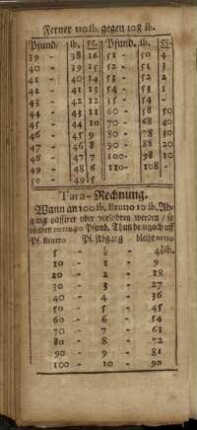 Ferner 110 lb. gegen 108 lb.
Pfund/ lb. 32. Pfund. lb. 32.
39 - 38 16 51 - 50 4
40 - 39 15 52 - 51 3
41 - 40 14 53 - 52 2
42 - 41 13 54 - 53 1
43 - 42 12 55 - 54 -
44 - 43 11 60 - 58 50
45 - 44 10 70 - 68 40
46 - 45 9 80 - 78 30
47 - 46 8 90 - 88 20
48 - 47 7 100 - 98 10
49 - 48 6 110 - 108 -
50 - 49 5
Tara-Rechnung.
Wann an 100 lb. Brutto 10 lb. Ab-
gang passiret oder verlohren werden / so
bleiben netto 90 Pfund. Thun demnach uff
Pf. Brutto Pf. Abgang bleibt netto
5 - ½ - 4½ lb.
10 - 1 - 9
20 - 2 - 18
30 - 3 - 27
40 - 4 - 36
50 - 5 - 45
60 - 6 - 54
70 - 7 - 63
80 - 8 - 72
90 - 9 - 81
100 - 10 - 90